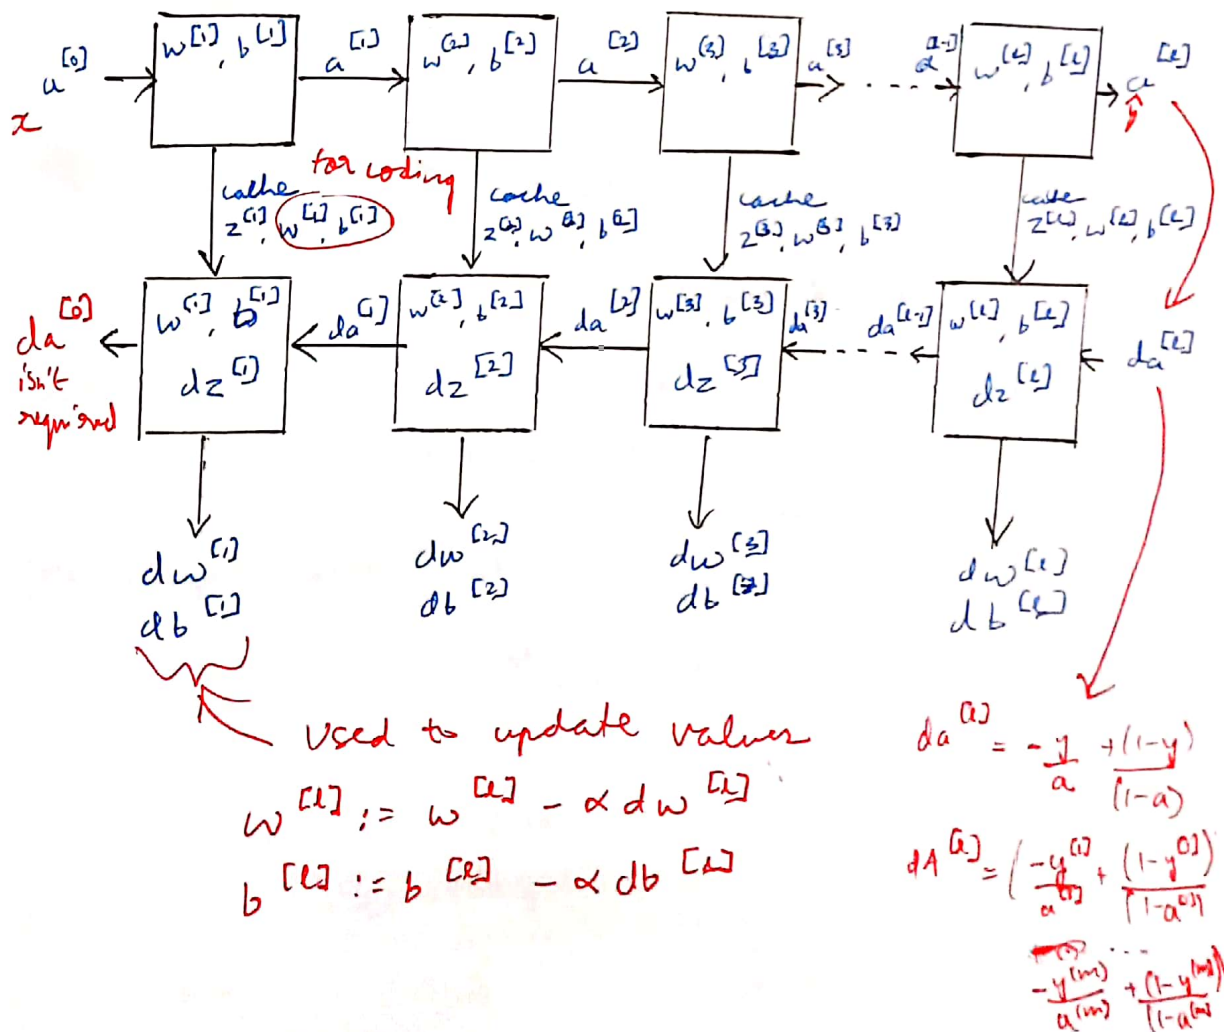 a^[0]
x
w^[1], b^[1]
a^[1]
w^[2], b^[2]
a^[2]
w^[3], b^[3]
a^[3]
a^[l-1]
w^[l], b^[l]
a^[l]
ŷ
for coding
cache
z^[1], w^[1], b^[1]
cache
z^[2], w^[2], b^[2]
cache
z^[3], w^[3], b^[3]
cache
z^[l], w^[l], b^[l]
da^[0]
isn't
required
w^[1], b^[1]
dz^[1]
da^[1]
w^[2], b^[2]
dz^[2]
da^[2]
w^[3], b^[3]
dz^[3]
da^[3]
da^[l-1]
w^[l], b^[l]
dz^[l]
da^[l]
dw^[1]
db^[1]
dw^[2]
db^[2]
dw^[3]
db^[3]
dw^[l]
db^[l]
used to update values
w^[l] := w^[l] - α dw^[l]
b^[l] := b^[l] - α db^[l]
da^[l] = -y/a + (1-y)/(1-a)
dA^[l] = (-y^(1)/a^(1) + (1-y^(1))/(1-a^(1))
...
-y^(m)/a^(m) + (1-y^(m))/(1-a^(m))